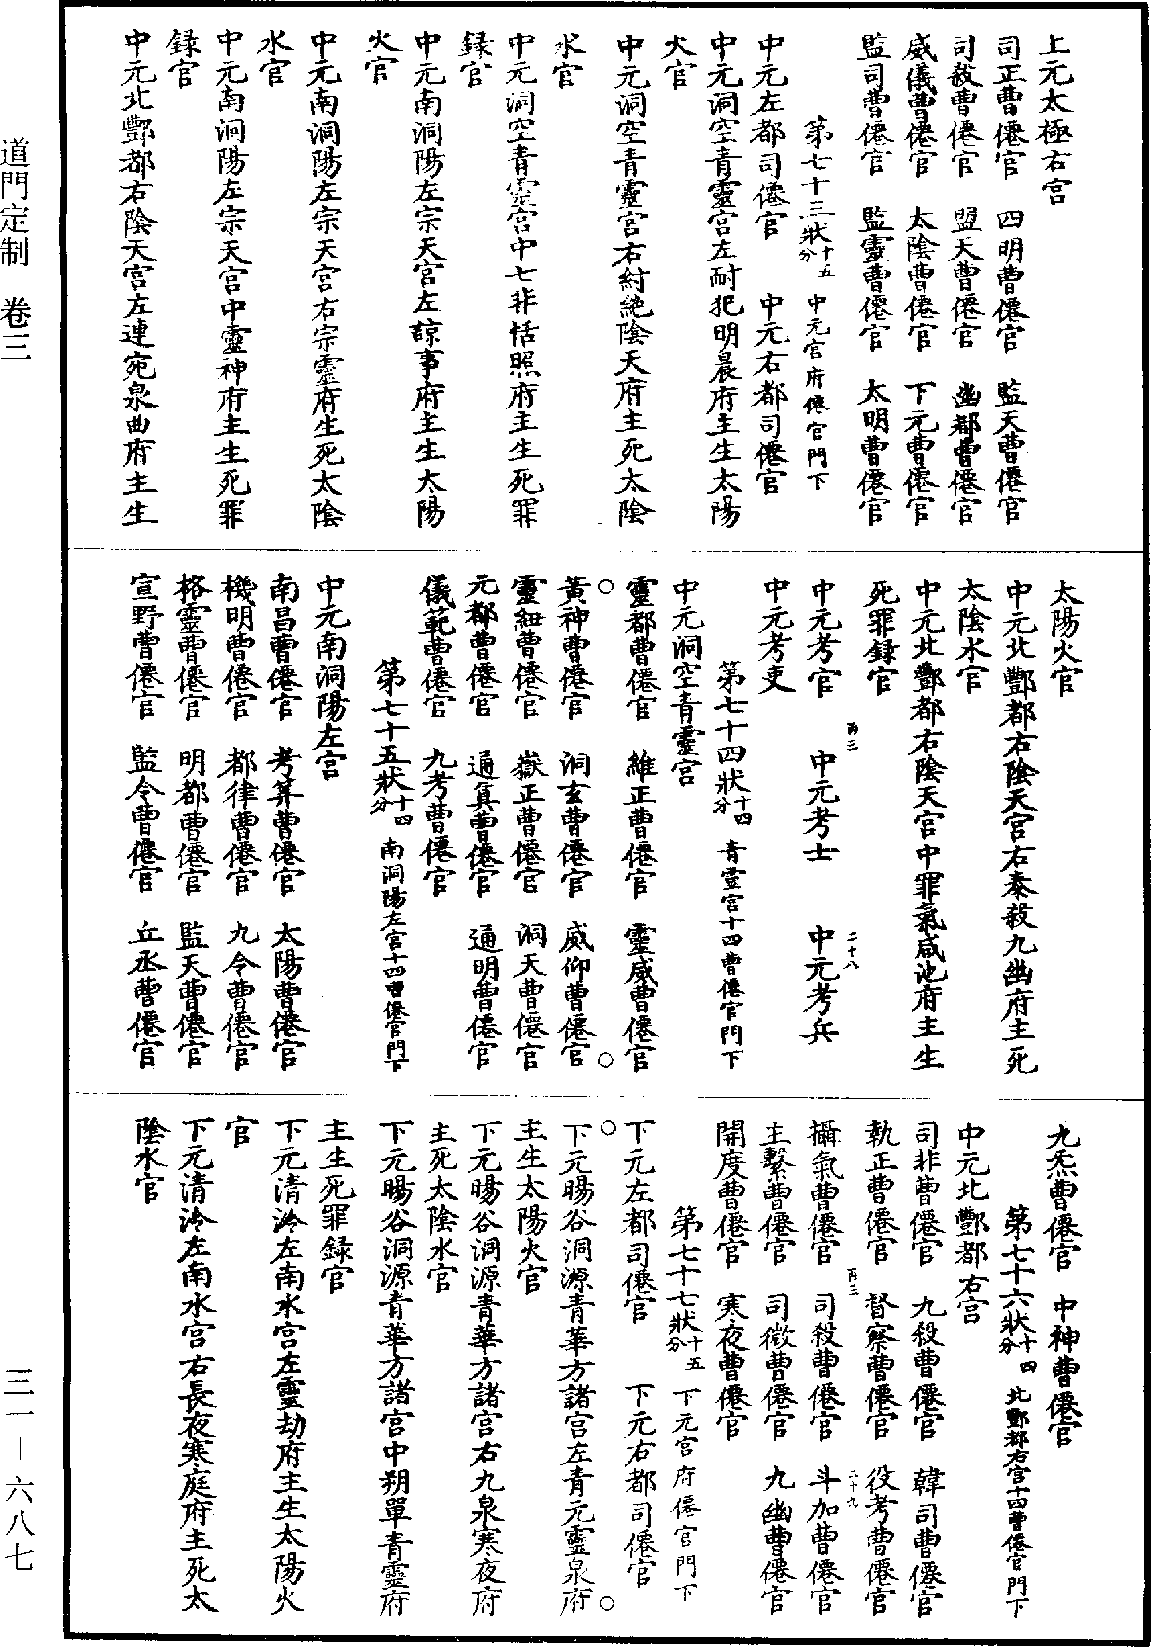 上元太極右宮
司正曹僊官　四明曹僊官　監天曹僊官
司殺曹僊官　盟天曹僊官　幽都曹僊官
威儀曹僊官　太陰曹僊官　下元曹僊官
監司曹僊官　監靈曹僊官　太明曹僊官
第七十三狀十五分　中元宮府僊官門下
中元左都司僊官　中元右都司僊官
中元洞空青靈宮左耐犯明晨府主生太陽
火官
中元洞空青靈宮右紂絶陰天府主死太陰
水官
中元洞空青靈宮中七非恬照府主生死罪
録官
中元南洞陽左宗天宮左諒事府主生太陽
火官
中元南洞陽左宗天宮右宗靈府生死太陰
水官
中元南洞陽左宗天宮中靈神府主生死罪
録官
中元北酆都右陰天宮左連宛泉曲府主生
太陽火官
中元北酆都右陰天宮右泰殺九幽府主死
太陰水官
中元北酆都右陰天宮中罪氣咸池府主生
死罪録官
中元考官　中元考士　中元考兵
中元考吏
第七十四狀十四分　青靈宮十四曹僊官門下
中元洞空青靈宮
靈都曹僊官　維正曹僊官　靈威曹僊官
黃神曹僊官　洞玄曹僊官　威仰曹僊官
靈紐曹僊官　嶽正曹僊官　洞天曹僊官
元都曹僊官　通真曹僊官　通明曹僊官
儀範曹僊官　九考曹僊官
第七十五狀十四分　南洞陽左宮十四曹僊官門下
中元南洞陽左宮
南昌曹僊官　考筭曹僊官　太陽曹僊官
機明曹僊官　都律曹僊官　九令曹僊官
格靈曹僊官　明都曹僊官　監天曹僊官
宣野曹僊官　監令曹僊官　丘丞曹僊官
九炁曹僊官　中神曹僊官
第七十六狀十四分　北酆都右宮十四曹僊官門下
中元北酆都右宮
司非曹僊官　九殺曹僊官　韓司曹僊官
執正曹僊官　督察曹僊官　役考曹僊官
攝氣曹僊官　司殺曹僊官　斗加曹僊官
主繫曹僊官　司徵曹僊官　九幽曹僊官
開度曹僊官　寒夜曹僊官
第七十七狀十五分　下元宮府僊官門下
下元左都司僊官　下元右都司僊官
下元暘谷洞源青華方諸宮左青元靈泉府
主生太陽火官
下元暘谷洞源青華方諸宮右九泉寒夜府
主死太陰水官
下元暘谷洞源青華方諸宮中朔單青靈府
主生死罪録官
下元清泠左南水宮左靈劫府主生太陽火
官
下元清泠左南水宮右長夜寒庭府主死太
陰水官
丙三　二十八
丙三　二十九
道門定制　卷三
三一－六八七